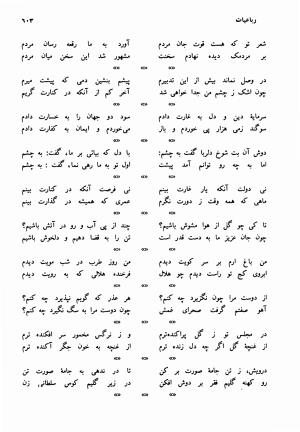 رباعیات
۶۰۳
شعر تو که هست قوت جان مردم
آورد به ما رقعه رسان مردم
بر مردمک دیده نهادم سخنت
مشهور شد این سخن میان مردم
در وصل نماند بیش از این تدبیرم
پیشم بنشین دمی که پیشت میرم
چون اشک ز چشم من جدا خواهی شد
آخر کم از آنکه در کنارت گیرم
سرمایهٔ دین و دل به غارت دادم
سود دو جهان را به خسارت دادم
سوگند زمی هزار پی خوردم و باز
می‌خوردم و ایمان به کفارت دادم
دوش آن بت شوخ دلربا گفت به چشم
با دل که بیائی بر ما، گفت: به چشم
اما به چه رو توانم آمد پیشت
اول تو به ما رهی نما، گفت : به چشم
نی دولت آنکه یار غارت بینم
نی فرصت آنکه در کنارت بینم
ماهی که همه وقت ز دورت نگرم
عمری که همیشه در گذارت بینم
تا کی چو گل از هوا مشوش باشیم؟
چند از پی آب و رو در آتش باشیم؟
چون جان عزیز ما به دست قدر است
تن را به قضا دهیم و دلخوش باشیم
من باغ ارم بر سر کویت دیدم
من روز طرب در شب مویت دیدم
ابروی کج تو راست دیدم چو هلال
فرخنده هلالی که به رویت دیدم
از دوست مرا چون نگزیرد چه کنم؟
هر عذر که گویم نپذیرد چه کنم؟
آهو صفتم گرفت صحرای غمش
چون دوست مرا به سگ نگیرد چه کنم؟
در مجلس تو ز گل پراکنده‌ترم
و ز نرگس مخمور سر افکنده ترم
از غنچهٔ گل اگر چه دل زنده ترم
از غنچه به خون جگر آکنده ترم
درویش، ز تن جامهٔ صورت برکن
تا در ندهی به جامهٔ صورت تن
رو کهنه گلیم فقر بر دوش افکن
در زیر گلیم کوس سلطانی زن